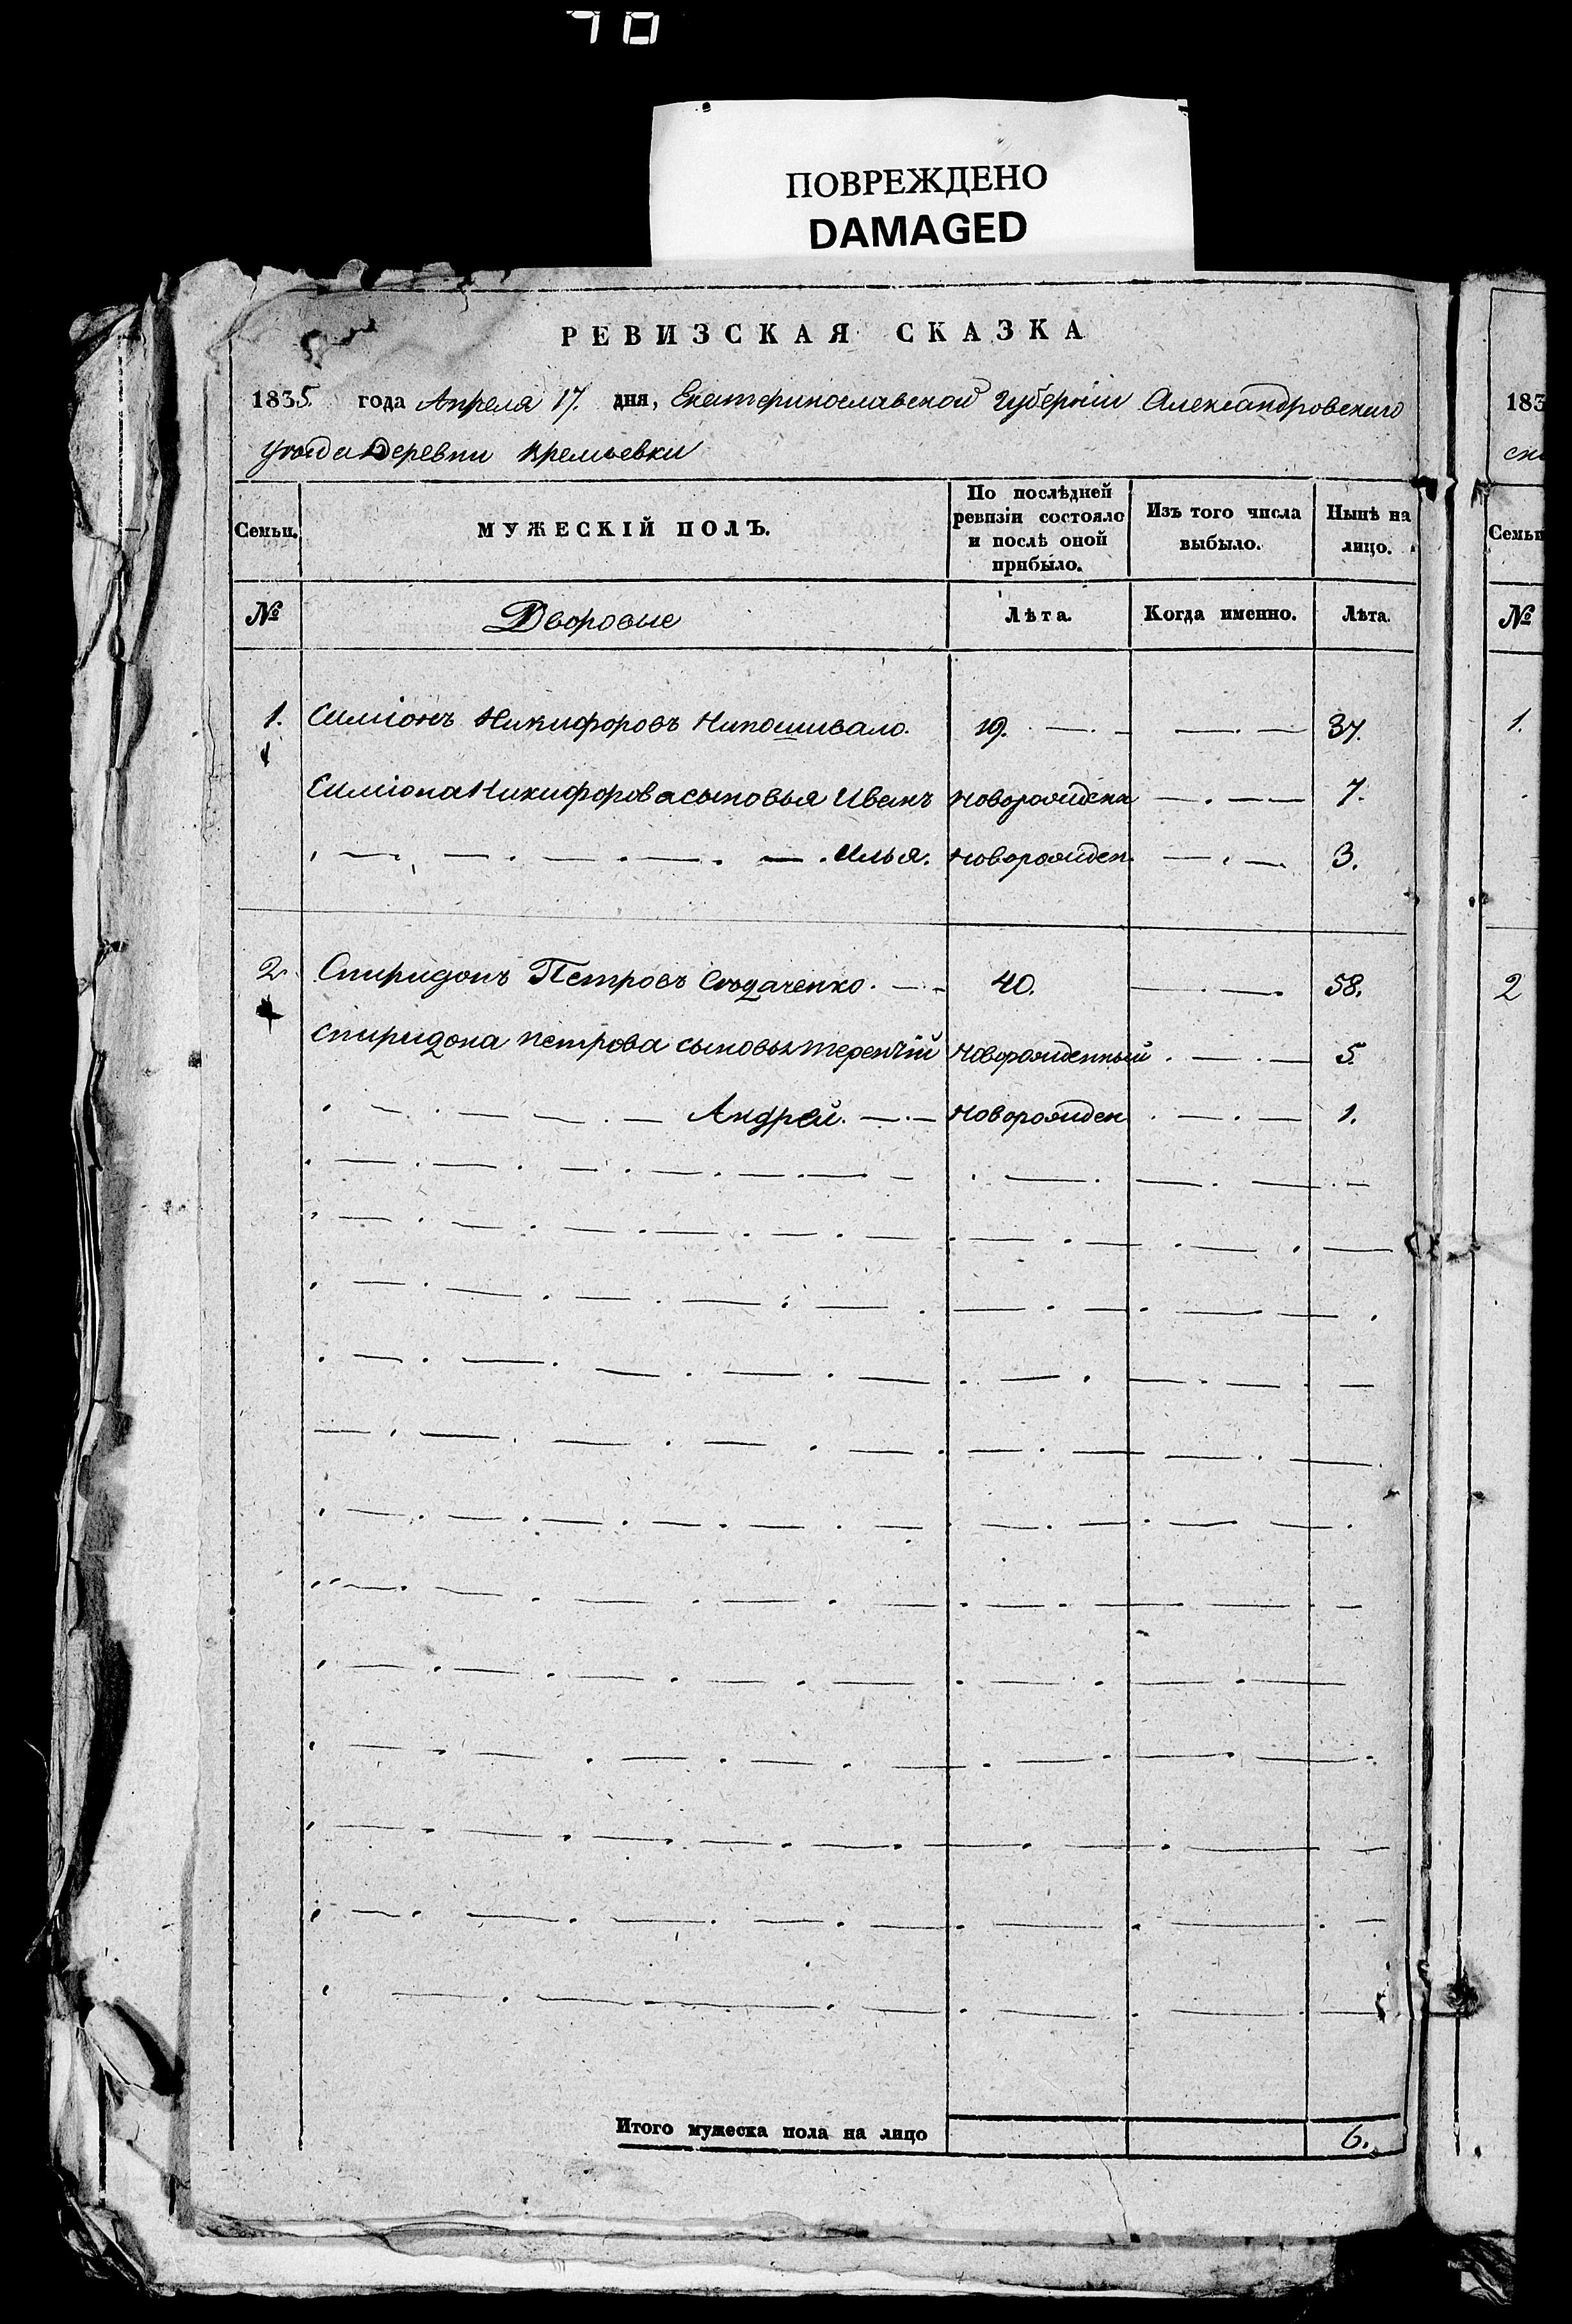 70
ПОВРЕЖДЕНО
DAMAGED
РЕВИЗСКАЯ СКАЗКА
1835. года Апреля 17. дня, Екатеринославской Губерніи Александровского
уезда Деревни Кремневки
Семьи. МУЖЕСКІЙ ПОЛЪ. По послѣдней ревизіи состояло и послѣ оной прибыло. Изъ того числа выбыло. Нынѣ на лицо.
№ Дворовые Лѣта. Когда именно. Лѣта.
1. Симіонъ Никифоровъ Нипошивало. 19. 37.
Симіона Никифорова сыновья Иванъ новорожденн 7.
Илья. новорожден. 3.
2. Спиридонъ Петровъ 40. 58.
Спиридона петрова сыновья терентій новорожденный 5.
Андрей. новорожден 1.
Итого мужеска пола на лицо 6.
183
Семьи
№
1.
2